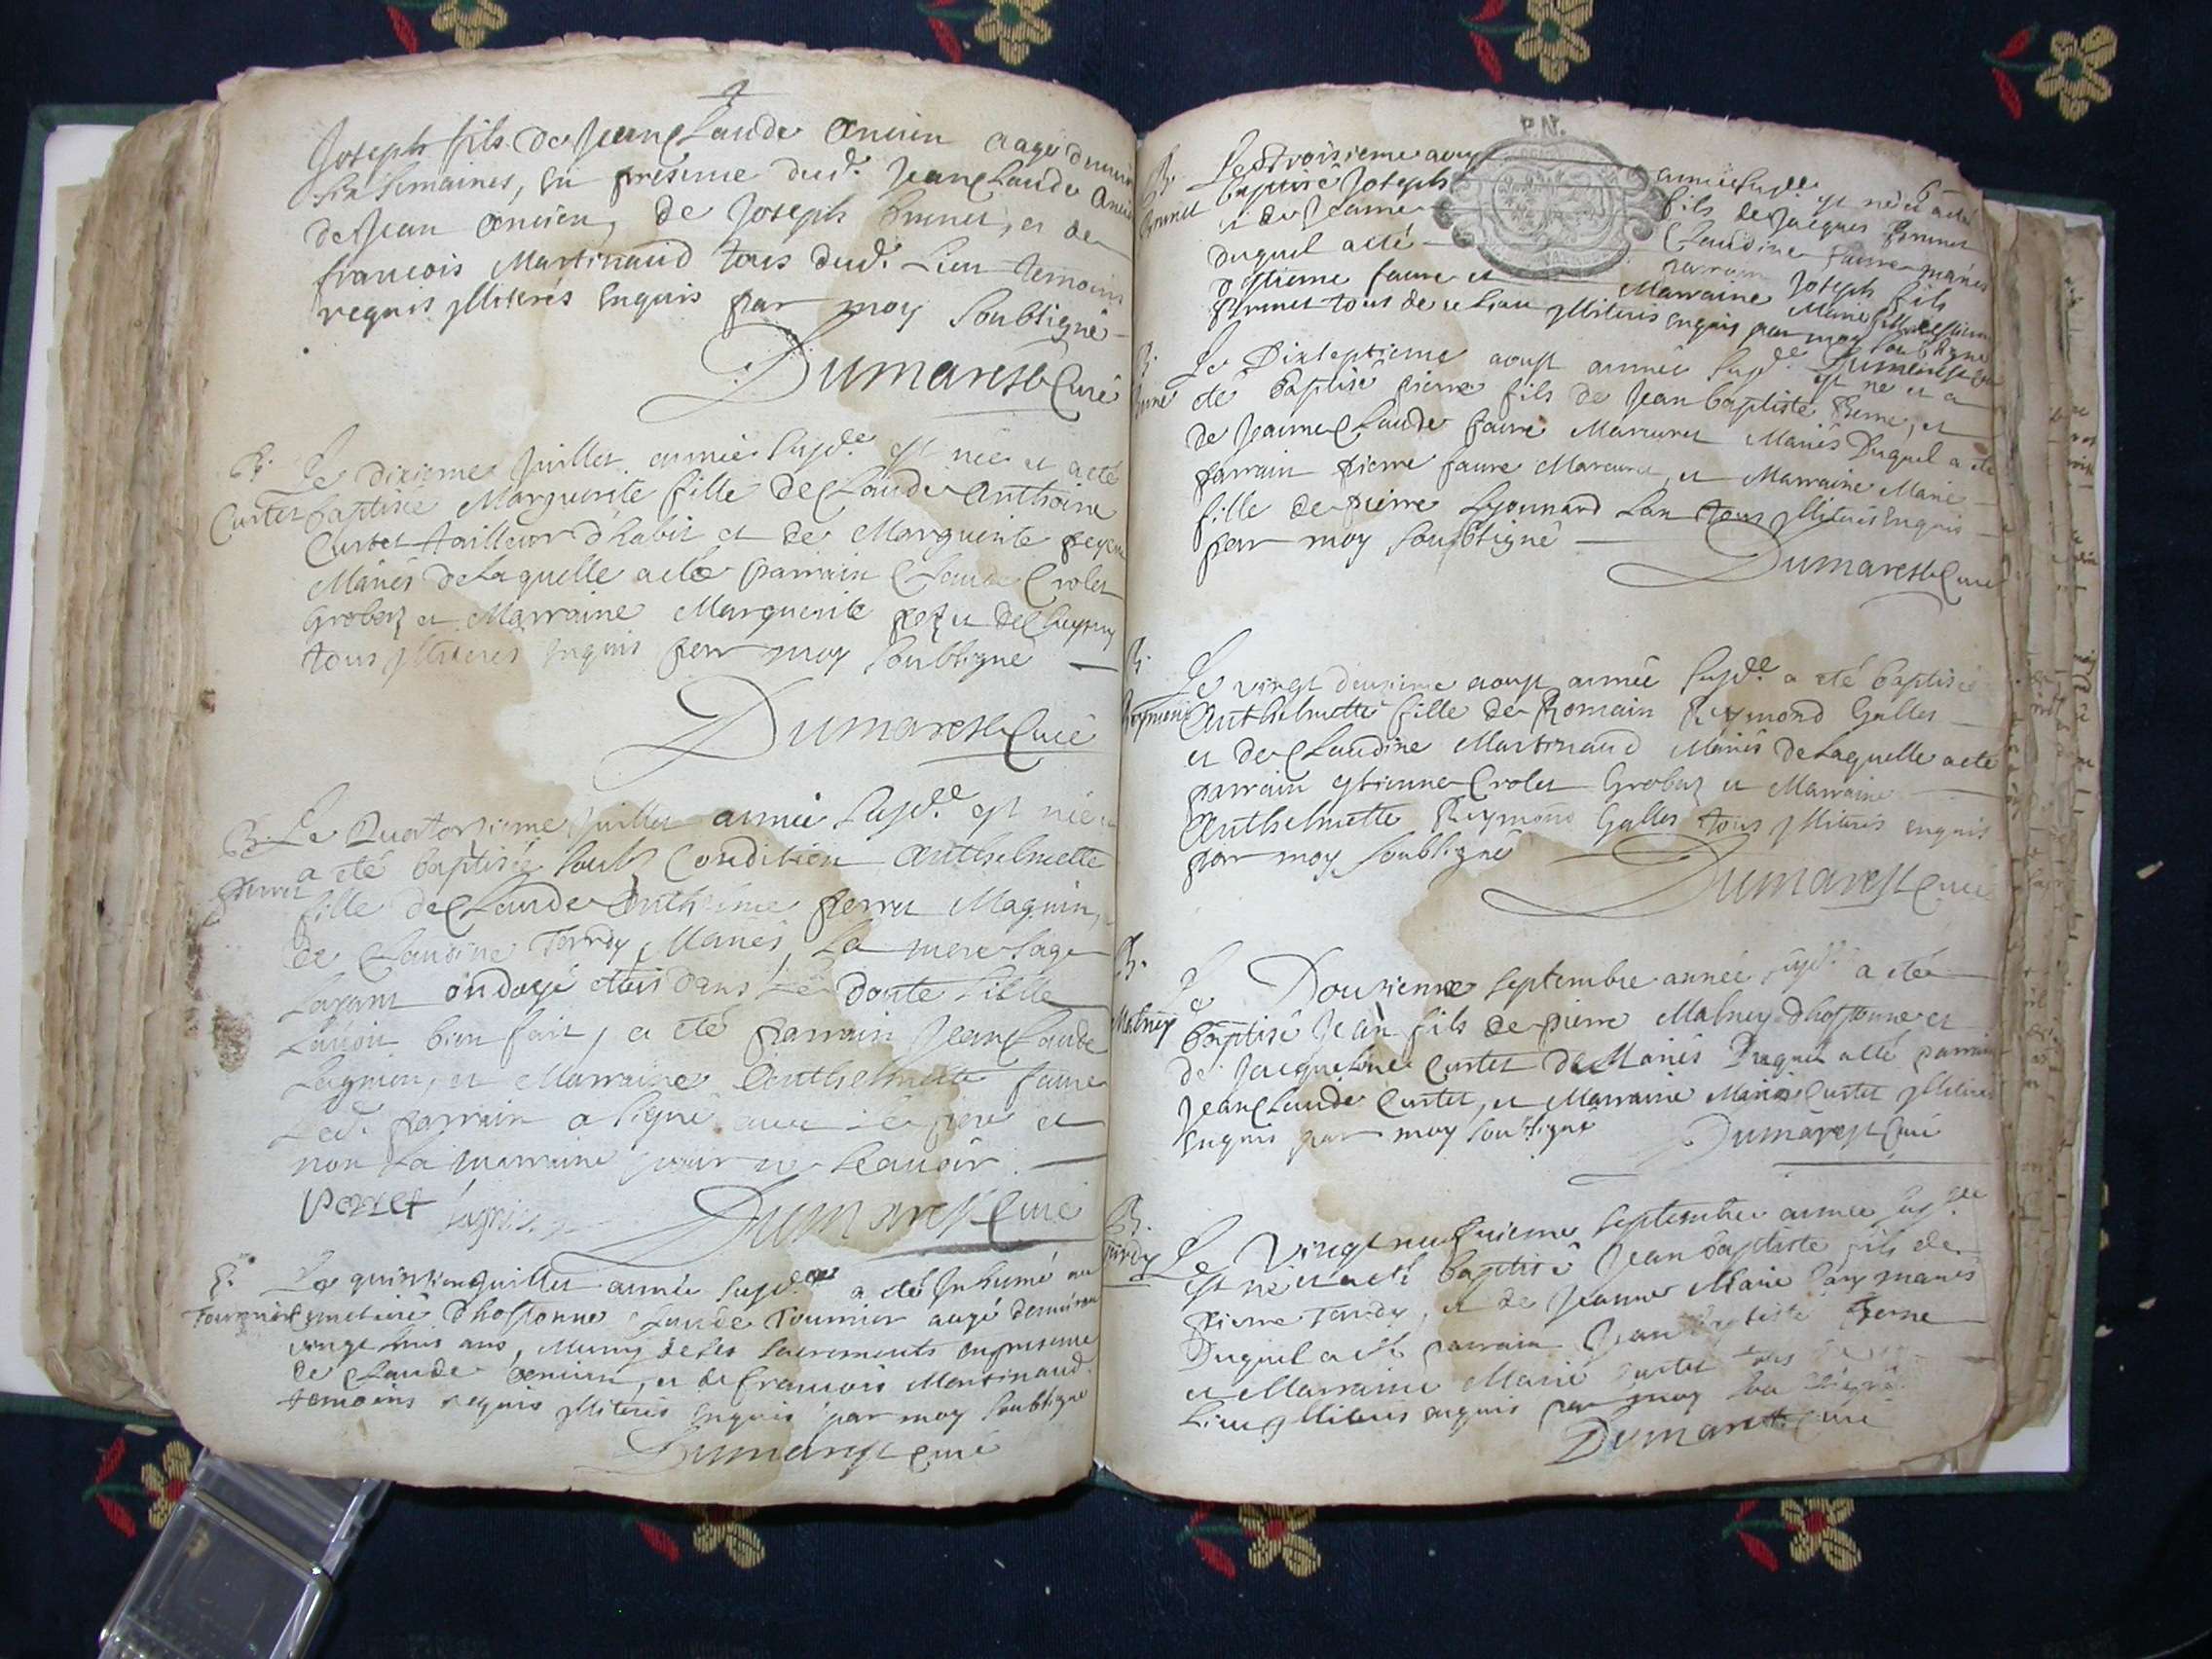 Joseph fils de Jean Claude Ancien aagé
six semaines, en presence dud. Jean Claude
de Jean Ancien, de Joseph Brunet, et de
francois Martinaud tous dud. Lieu temoins
requis illiterés enquis par moy soubsigné
Dumarest Curé
B.
Curtet
Le dixieme Juillet année susd.e est née et a eté
baptisée Marguerite fille de Claude Anthoine
Curtet tailleur d'habit et de Marguerite
Mariés de Laquelle a eté parrain Claude Crolet
Grobaz et Marraine Marguerite
tous illiterés enquis par moy soubsigné
Dumarest Curé
B.
Perret
Le Quatorzieme Juillet année susd.e est née
a eté baptisée soubs Condition Anthelmette
fille de Claude Anthelme Perret Magnin,
de Claudine Tardy Mariés, La mere sage
Layant ondoyé etais dans Le doute si elle
Lavoit bien fait, a eté parrain Jean Claude
Lagnieu, et Marraine Anthelmette faure
Led. parrain a signé avec Le pere et
non La marraine pour ne scavoir
Perret
Dumarest Curé
S.
Tournier
Le quinzieme Juillet année susd.e a eté Inhumé au
cimetiere Dhostonne Claude Tournier aagé denviron
vingt huit ans, Muny de ses sacrements en presence
de Claude Ancien, et de francois Martinaud
temoins requis illiterés enquis par moy soubsigné
Dumarest Curé
P.N.
6
B.
Brunet
Le troisieme aoust année susd.e est né et a eté
baptisé Joseph fils de Jacques Brunet
et de Jeanne Claudine faure mariés
duquel a eté parrain Joseph fils
d'Estienne faure et Marraine Marie fille
Brunet tous de ce Lieu illiterés enquis par moy soubsigné
Dumarest
B.
Berne
Le Dixseptieme aoust année susd.e est né et a
eté baptisé pierre fils de Jean baptiste Berne, et
de Jeanne Claude faure Marcuret Mariés Duquel a eté
parrain pierre faure Marcuret, et Marraine Marie
fille de pierre Lyonnard Lan tous illiterés enquis
par moy soubsigné
Dumarest Curé
B.
Reymond
Le vingt deuxieme aoust année susd.e a eté baptisée
Anthelmette fille de Romain Reymond Galles
et de Claudine Martinaud Mariés de Laquelle a eté
parrain estienne Crolet Grobaz et Marraine
Anthelmette Reymond Galles tous illiterés enquis
par moy soubsigné
Dumarest Curé
B.
Malney
Le Douzieme Septembre année susd.e a eté
baptisé Jean fils de pierre Malney Dhostonne et
de Jacqueline Curtet Mariés Duquel a eté parrain
Jean Claude Curtet, et Marraine Marie Curtet illiterés
enquis par moy soubsigné
Dumarest Curé
B.
Tardy
Le Vingt neufvieme Septembre année susd.e
est né et a eté baptisé Jean baptiste fils de
Pierre Tardy, et de Jeanne Marie mariés
Duquel a eté parrain Jean baptiste Berne
et Marraine Marie Curtet tous de ce
Lieu illiterés enquis par moy soubsigné
Dumarest Curé